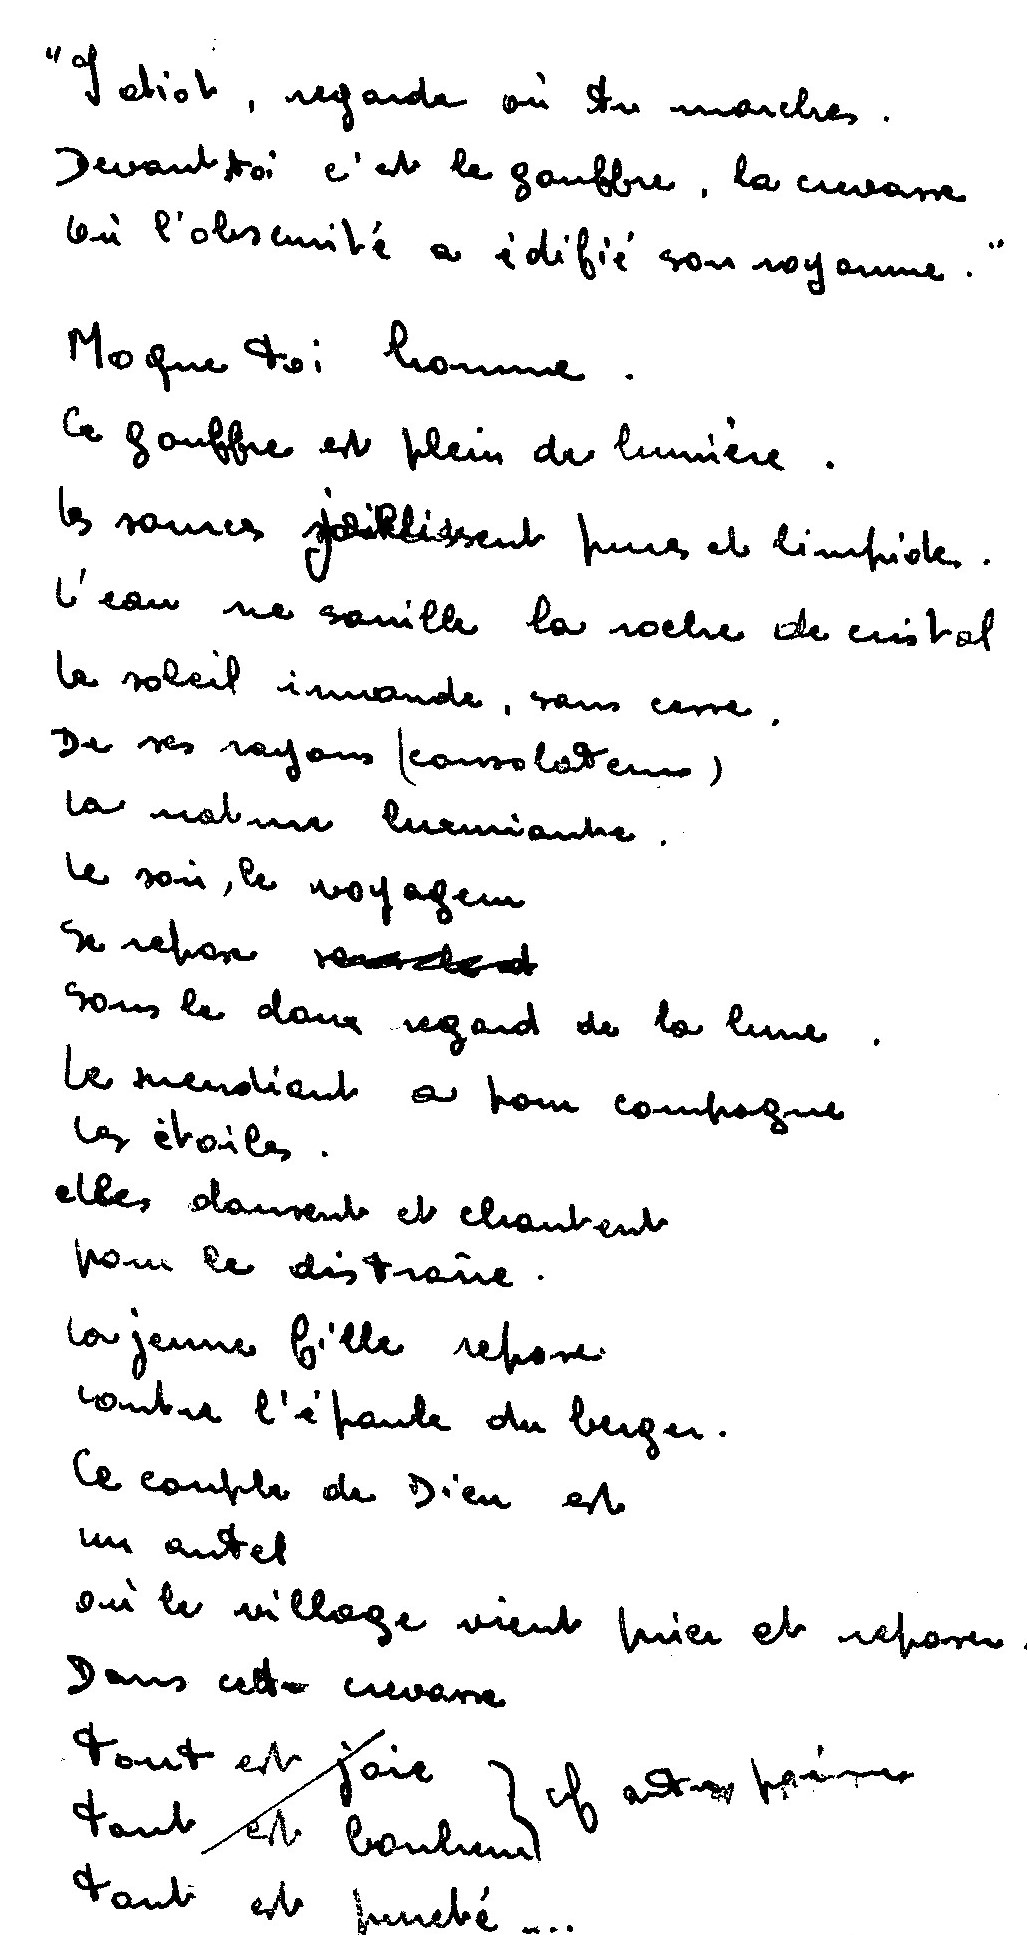 "Idiot, regarde où tu marches.
Devant toi c'est le gouffre, la crevasse
où l'obscurité a édifié son royaume."
Moque toi homme.
Ce gouffre est plein de lumière.
Les sources jaillissent pures et limpides.
L'eau ne souille la roche de cristal
Le soleil innonde, sans cesse,
De ses rayons (consolateurs)
La nature luxuriante.
Le soir, le voyageur
Se repose
Sous le doux regard de la lune.
Le mendiant a pour compagne
Les étoiles.
elles dansent et chantent
pour le distraire.
La jeune fille repose
contre l'épaule du berger.
Ce couple de Dieu est
un autel
où le village vient prier et reposer.
Dans cette crevasse
tout est joie
tout est bonheur } cf autres poèmes
tout est pureté ....